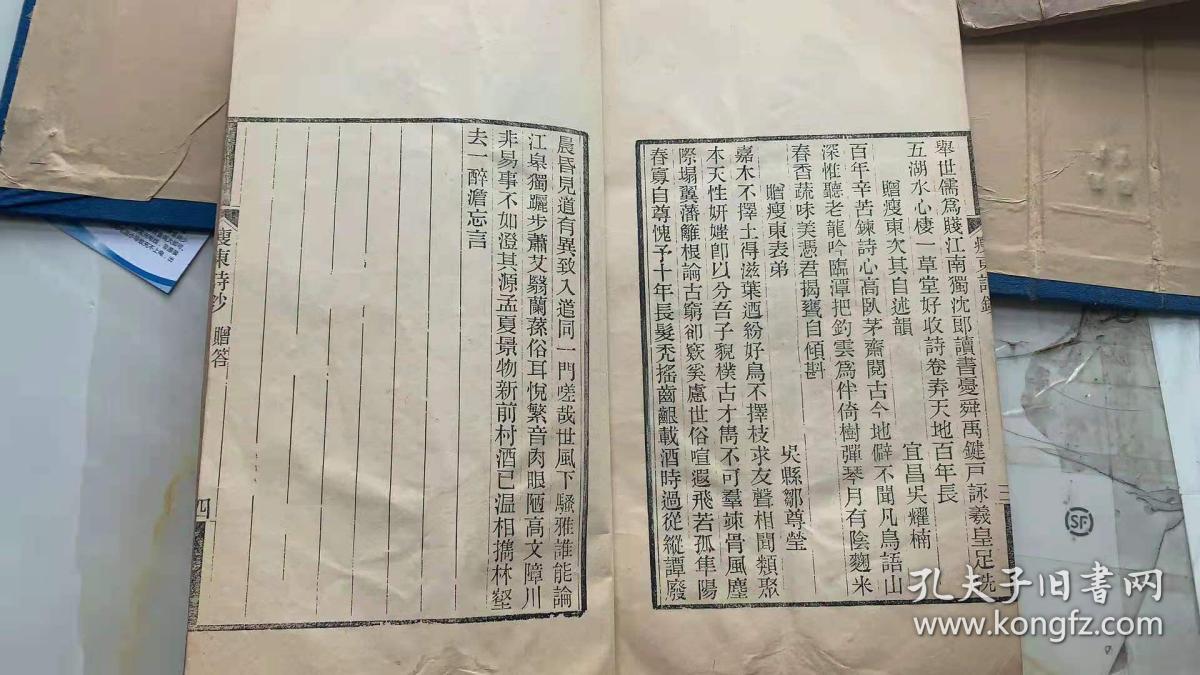 舉世儒爲賤江南獨沈郎讀書憂舜禹鍵戸詠羲皇足洗
五湖水心棲一草堂好收詩卷弆天地百年長
贈瘦東次其自述韻 宜昌吳耀楠
百年辛苦鍊詩心高臥茅齋閱古今地僻不聞凡鳥語山
深惟聽老龍吟臨潭把釣雲爲伴倚樹彈琴月有陰麴米
春香蔬味美憑君揭甕自傾斟
贈瘦東表弟 吳縣鄒尊瑩
嘉木不擇土得滋葉迺紛好鳥不擇枝求友聲相聞類聚
本天性妍媸卽以分吾子貌樸古才雋不可羣竦骨風塵
際塌翼藩籬根論古窮卻竅奚慮世俗喧遐飛若孤隼陽
春敻自尊愧予十年長髮禿搖齒齦載酒時過從縱譚廢
三
晨昏見道有異致入道同一門嗟哉世風下騷雅誰能論
江皋獨躧步蕭艾翳蘭蓀俗耳悅繁音肉眼陋高文障川
非易事不如澄其源孟夏景物新前村酒已温相攜林壑
去一醉澹忘言
瘦東詩鈔 贈答
四
孔夫子旧书网
www.kongfz.com
SF